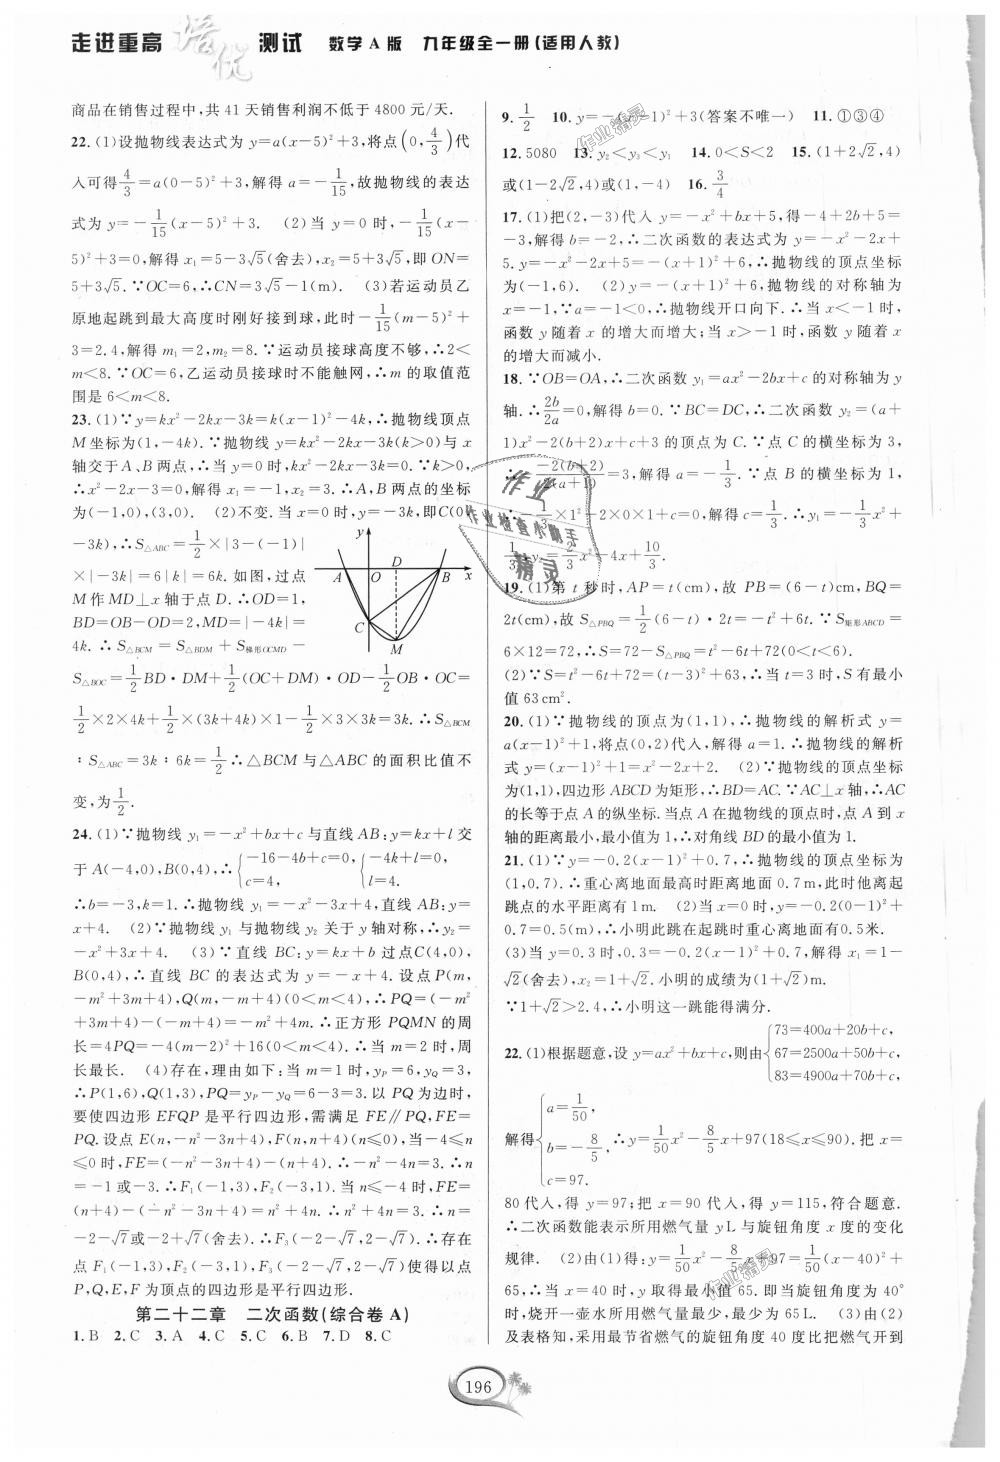 走进重高 培优 测试 数学A版 九年级全一册(适用人教)
商品在销售过程中,共41天销售利润不低于4800元/天.
22.(1)设抛物线表达式为y=a(x-5)²+3,将点(0,4/3)代
入可得4/3=a(0-5)²+3,解得a=-1/15,故抛物线的表达
式为y=-1/15(x-5)²+3. (2)当y=0时,-1/15(x-
5)²+3=0,解得x₁=5-3√5(舍去),x₂=5+3√5,即ON=
5+3√5.∵OC=6,∴CN=3√5-1(m). (3)若运动员乙
原地起跳到最大高度时刚好接到球,此时-1/15(m-5)²+
3=2.4,解得m₁=2,m₂=8.∵运动员接球高度不够,∴2<
m<8.∵OC=6,乙运动员接球时不能触网,∴m的取值范
围是6<m<8.
23.(1)∵y=kx²-2kx-3k=k(x-1)²-4k,∴抛物线顶点
M坐标为(1,-4k).∵抛物线y=kx²-2kx-3k(k>0)与x
轴交于A、B两点,∴当y=0时,kx²-2kx-3k=0.∵k>0,
∴x²-2x-3=0.解得x₁=-1,x₂=3.∴A,B两点的坐标
为(-1,0),(3,0). (2)不变.当x=0时,y=-3k,即C(0,
-3k),∴S△ABC=1/2×|3-(-1)|
×|-3k|=6|k|=6k.如图,过点
M作MD⊥x轴于点D.∴OD=1,
BD=OB-OD=2,MD=|-4k|=
4k.∴S△BCM=S△BDM+S梯形OCMD-
y
A O D B x
C
M
S△BOC=1/2BD·DM+1/2(OC+DM)·OD-1/2OB·OC=
1/2×2×4k+1/2×(3k+4k)×1-1/2×3×3k=3k.∴S△BCM
:S△ABC=3k:6k=1/2∴△BCM与△ABC的面积比值不
变,为1/2.
24.(1)∵抛物线y₁=-x²+bx+c与直线AB:y=kx+l交
于A(-4,0),B(0,4),∴{-16-4b+c=0, c=4, {-4k+l=0, l=4.
∴b=-3,k=1.∴抛物线y₁=-x²-3x+4,直线AB:y=
x+4. (2)∵抛物线y₁与抛物线y₂关于y轴对称,∴y₂=
-x²+3x+4. (3)∵直线BC:y=kx+b过点C(4,0),
B(0,4),∴直线BC的表达式为y=-x+4.设点P(m,
-m²+3m+4),Q(m,-m+4)(0<m<4),∴PQ=(-m²
+3m+4)-(-m+4)=-m²+4m.∴正方形PQMN的周
长=4PQ=-4(m-2)²+16(0<m<4),∴当m=2时,周
长最长. (4)存在,理由如下:当m=1时,yP=6,yQ=3,
∴P(1,6),Q(1,3),PQ=yP-yQ=6-3=3.以PQ为边时,
要使四边形EFQP是平行四边形,需满足FE∥PQ,FE=
PQ.设点E(n,-n²-3n+4),F(n,n+4)(n≤0),当-4≤n
≤0时,FE=(-n²-3n+4)-(n+4).∴-n²-4n=3.∴n
=-1或-3.∴F₁(-1,3),F₂(-3,1).当n≤-4时,FE=
(n+4)-(-n²-3n+4)=n²+4n.∴n²+4n=3.∴n=
-2-√7或-2+√7(舍去).∴F₃(-2-√7,2-√7).∴存在
点F₁(-1,3),F₂(-3,1),F₃(-2-√7,2-√7)使得以点
P,Q,E,F为顶点的四边形是平行四边形.
第二十二章 二次函数(综合卷A)
1.B 2.C 3.A 4.C 5.C 6.B 7.D 8.C
9.1/2 10.y=-(x-1)²+3(答案不唯一) 11.①③④
12.5080 13.y₂<y₃<y₁ 14.0<S<2 15.(1+2√2,4)
或(1-2√2,4)或(1,-4) 16.3/4
17.(1)把(2,-3)代入y=-x²+bx+5,得-4+2b+5=
-3,解得b=-2,∴二次函数的表达式为y=-x²-2x+
5.y=-x²-2x+5=-(x+1)²+6,∴抛物线的顶点坐标
为(-1,6). (2)y=-(x+1)²+6,∴抛物线的对称轴为
x=-1,∵a=-1<0,∴抛物线开口向下.∴当x<-1时,
函数y随着x的增大而增大;当x>-1时,函数y随着x
的增大而减小.
18.∵OB=OA,∴二次函数y₁=ax²-2bx+c的对称轴为y
轴.∴2b/2a=0,解得b=0.∵BC=DC,∴二次函数y₂=(a+
1)x²-2(b+2)x+c+3的顶点为C.∵点C的横坐标为3,
∴--2(b+2)/2(a+1)=3,解得a=-1/3.∵点B的横坐标为1,
∴-1/3×1²-2×0×1+c=0,解得c=1/3.∴y₁=-1/3x²+
1/3,y₂=2/3x²-4x+10/3.
19.(1)第t秒时,AP=t(cm),故PB=(6-t)cm,BQ=
2t(cm),故S△PBQ=1/2(6-t)·2t=-t²+6t.∵S矩形ABCD=
6×12=72,∴S=72-S△PBQ=t²-6t+72(0<t<6).
(2)∵S=t²-6t+72=(t-3)²+63,∴当t=3时,S有最小
值63cm².
20.(1)∵抛物线的顶点为(1,1),∴抛物线的解析式y=
a(x-1)²+1,将点(0,2)代入,解得a=1.∴抛物线的解析
式y=(x-1)²+1=x²-2x+2. (2)∵抛物线的顶点坐标
为(1,1),四边形ABCD为矩形,∴BD=AC.∵AC⊥x轴,∴AC
的长等于点A的纵坐标.当点A在抛物线的顶点时,点A到x
轴的距离最小,最小值为1,∴对角线BD的最小值为1.
21.(1)∵y=-0.2(x-1)²+0.7,∴抛物线的顶点坐标为
(1,0.7).∴重心离地面最高时距离地面0.7m,此时他离起
跳点的水平距离有1m. (2)当x=0时,y=-0.2(0-1)²+
0.7=0.5(m),∴小明此跳在起跳时重心离地面有0.5米.
(3)当y=0.3时,0.3=-0.2(x-1)²+0.7,解得x₁=1-
√2(舍去),x₂=1+√2.小明的成绩为(1+√2)m.
∵1+√2>2.4,∴小明这一跳能得满分.
22.(1)根据题意,设y=ax²+bx+c,则由{73=400a+20b+c, 67=2500a+50b+c, 83=4900a+70b+c,
解得{a=1/50, b=-8/5, c=97. ∴y=1/50x²-8/5x+97(18≤x≤90).把x=
80代入,得y=97;把x=90代入,得y=115,符合题意.
∴二次函数能表示所用燃气量yL与旋钮角度x度的变化
规律. (2)由(1)得:y=1/50x²-8/5x+97=1/50(x-40)²+
65,∴当x=40时,y取得最小值65.即当旋钮角度为40°
时,烧开一壶水所用燃气量最少,最少为65L. (3)由(2)
及表格知,采用最节省燃气的旋钮角度40度比把燃气开到
作业
作业检查小助手
精灵
196